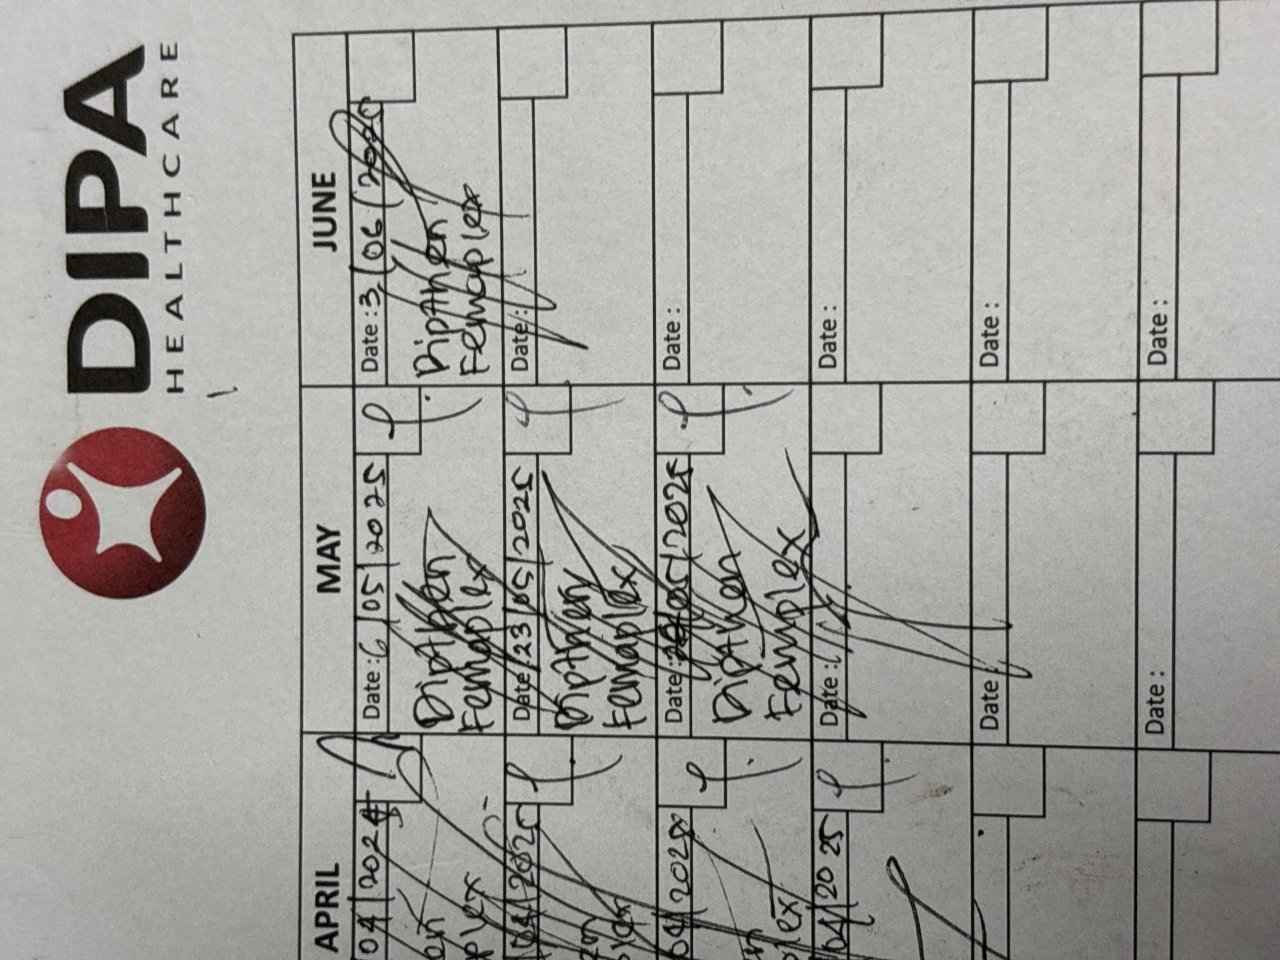 DIPA
HEALTHCARE
APRIL
04/2024
en
plex
04/2025
en
plex
04/2025
en
plex
04/2025
MAY
Date : 6/05/2025
Dipthen
Femoplex
Date : 23/05/2025
Dipthen
Femoplex
Date : /05/2025
Dipthen
Femoplex
Date :
Date :
Date :
JUNE
Date : 3/06/2025
Dipthen
Femoplex
Date :
Date :
Date :
Date :
Date :